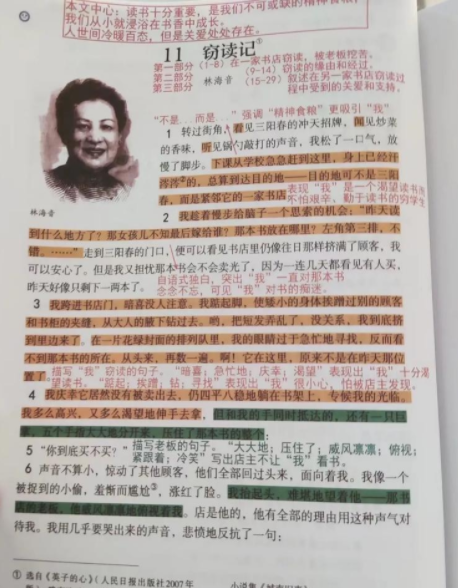 本文中心：读书十分重要，是我们不可或缺的精神食粮，
我们从小就浸浴在书香中成长。
人世间冷暖百态，但是关爱处处存在。
11 窃读记①
第一部分（1-8）在一家书店窃读，被老板挖苦。
第二部分 （9-14）窃读的缘由和经过。
林海音
第三部分 （15-29）叙述在另一家书店窃读过
程中受到的关爱和支持。
“不是……而是……”强调“精神食粮”更吸引“我”
1 转过街角，看见三阳春的冲天招牌，闻见炒菜
的香味，听见锅勺敲打的声音，我松了一口气，放
慢了脚步。下课从学校急急赶到这里，身上已经汗
涔涔②的，总算到达目的地——目的地可不是三阳
春，而是紧邻它的一家书店。
表现“我”是一个渴望读书
不怕艰辛、勤于读书的穷学生
林海音
2 我趁着慢步给脑子一个思索的机会：“昨天读
到什么地方了？那女孩儿不知最后嫁给谁？那本书放在哪里？左角第三排，不
错。……”走到三阳春的门口，便可以看见书店里仍像往日那样挤满了顾客，我
可以安心了。但是我又担忧那本书会不会卖光了，因为一连几天都看见有人买，
昨天好像只剩下一两本了。
自语式独白，突出“我”一直对那本书
念念不忘，可见“我”对书的痴迷。
3 我跨进书店门，暗喜没人注意。我踮起脚，使矮小的身体挨蹭过别的顾客
和书柜的夹缝，从大人的腋下钻过去。哟，把短发弄乱了，没关系，我到底挤
到里边来了。在一片花绿封面的排列队里，我的眼睛过于急忙地寻找，反而看
不到那本书的所在。从头来，再数一遍，啊！它在这里，原来不是在昨天那位
置了。
描写“我”窃读的句子。“暗喜；急忙地；庆幸；渴望”表现出“我”十分渴
望读书。“踮起；挨蹭；钻；寻找”表现出“我”很小心，怕被店主发现。
4 我庆幸它居然没有被卖出去，仍四平八稳地躺在书架上，专候我的光临。
我多么高兴，又多么渴望地伸手去拿，但和我的手同时抵达的，还有一只巨
掌，五个手指大大地分开来，压住了那本书的整个：
5 “你到底买不买？”
描写老板的句子。“大大地；压住了；威风凛凛；俯视；
紧跟着；冷笑”写出店主不让“我”看书。
6 声音不算小，惊动了其他顾客，他们全部回过头来，面向着我。我像一个
被捉到的小偷，羞惭而尴尬③，涨红了脸。我抬起头，难堪地望着他——那书
店的老板，他威风凛凛地俯视着我。店是他的，他有全部的理由用这种声气对
待我。我用几乎要哭出来的声音，悲愤地反抗了一句：
① 选自《英子的心》（人民日报出版社2007年